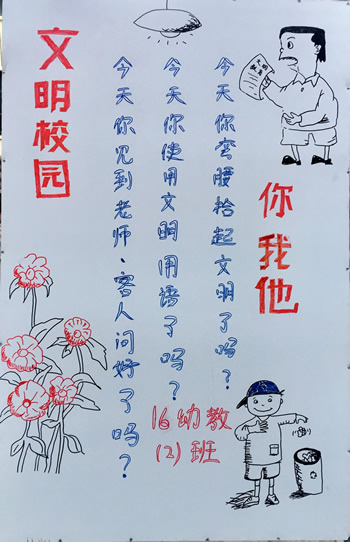 文明校园
你我他
今天你弯腰拾起文明了吗?
今天你使用文明用语了吗?
今天你见到老师、客人问好了吗?
16幼教
(2)班